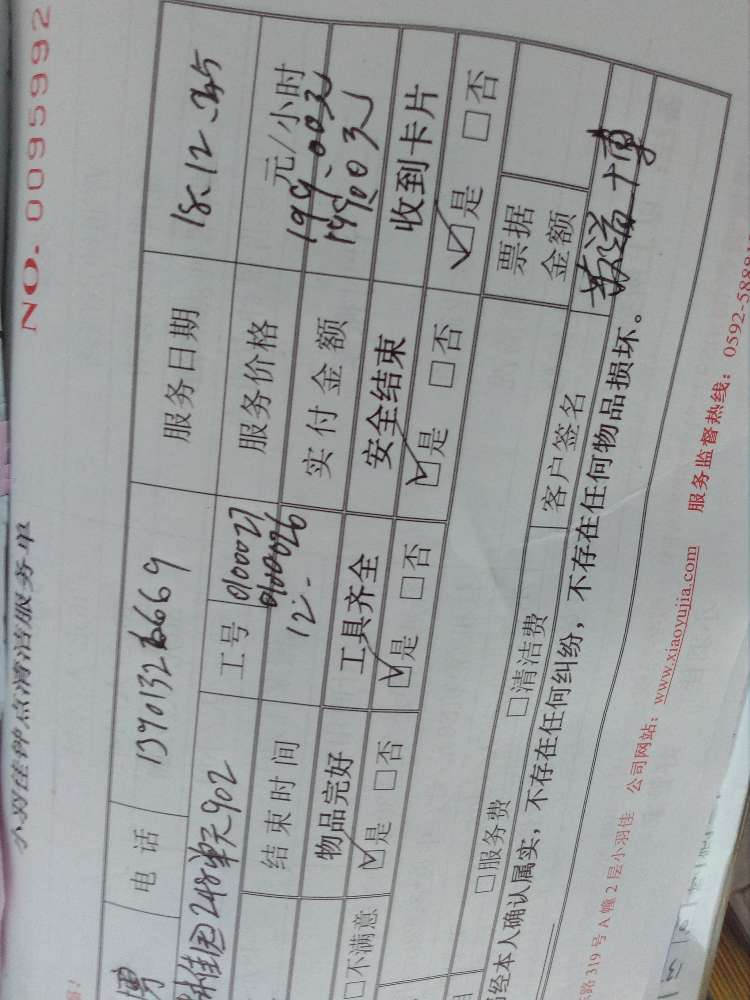 小羽佳钟点清洁服务单
NO. 0095992
博 电话 服务日期 18.12.
佳园248单元902 工号 0100027 0100026 服务价格 元/小时 199.00元
结束时间 12:- 实付金额 199.00元
物品完好 工具齐全 安全结束 收到卡片
□不满意 ☑是 □否 ☑是 □否 ☑是 □否 ☑是 □否
票据金额
□服务费 □清洁费 客户签名 博
经本人确认属实，不存在任何纠纷，不存在任何物品损坏。
路319号A幢2层小羽佳 公司网站：www.xiaoyujia.com 服务监督热线：0592-5888